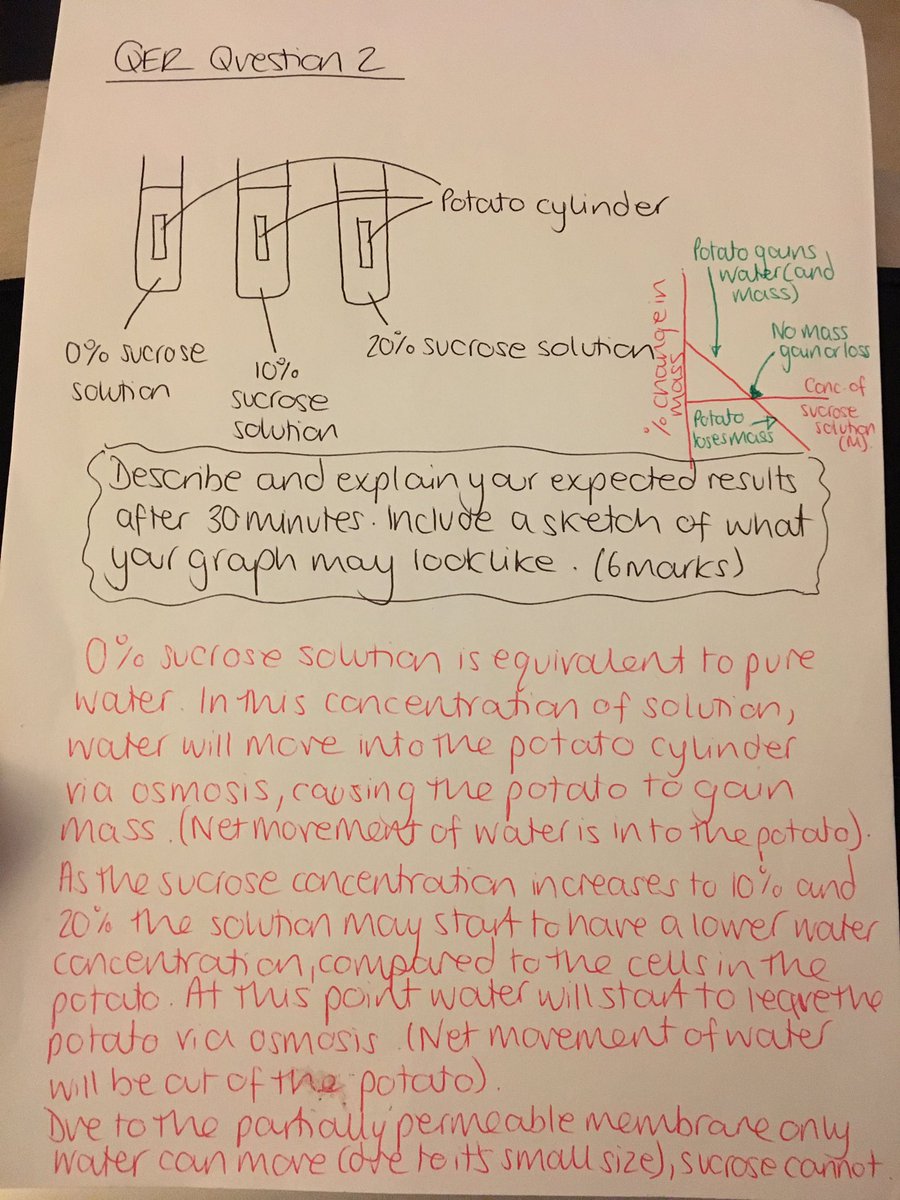 QER Question 2
Potato cylinder
0% sucrose
solution
10%
sucrose
solution
20% sucrose solution
% change in
mass
Potato gains
water (and
mass)
No mass
gain or loss
Conc. of
sucrose
solution
(M)
Potato
loses mass
Describe and explain your expected results
after 30 minutes. Include a sketch of what
your graph may look like. (6 marks)
0% sucrose solution is equivalent to pure
water. In this concentration of solution,
water will move into the potato cylinder
via osmosis, causing the potato to gain
mass. (Net movement of water is in to the potato).
As the sucrose concentration increases to 10% and
20% the solution may start to have a lower water
concentration, compared to the cells in the
potato. At this point water will start to leave the
potato via osmosis. (Net movement of water
will be out of the potato).
Due to the partially permeable membrane only
water can move (due to it's small size), sucrose cannot